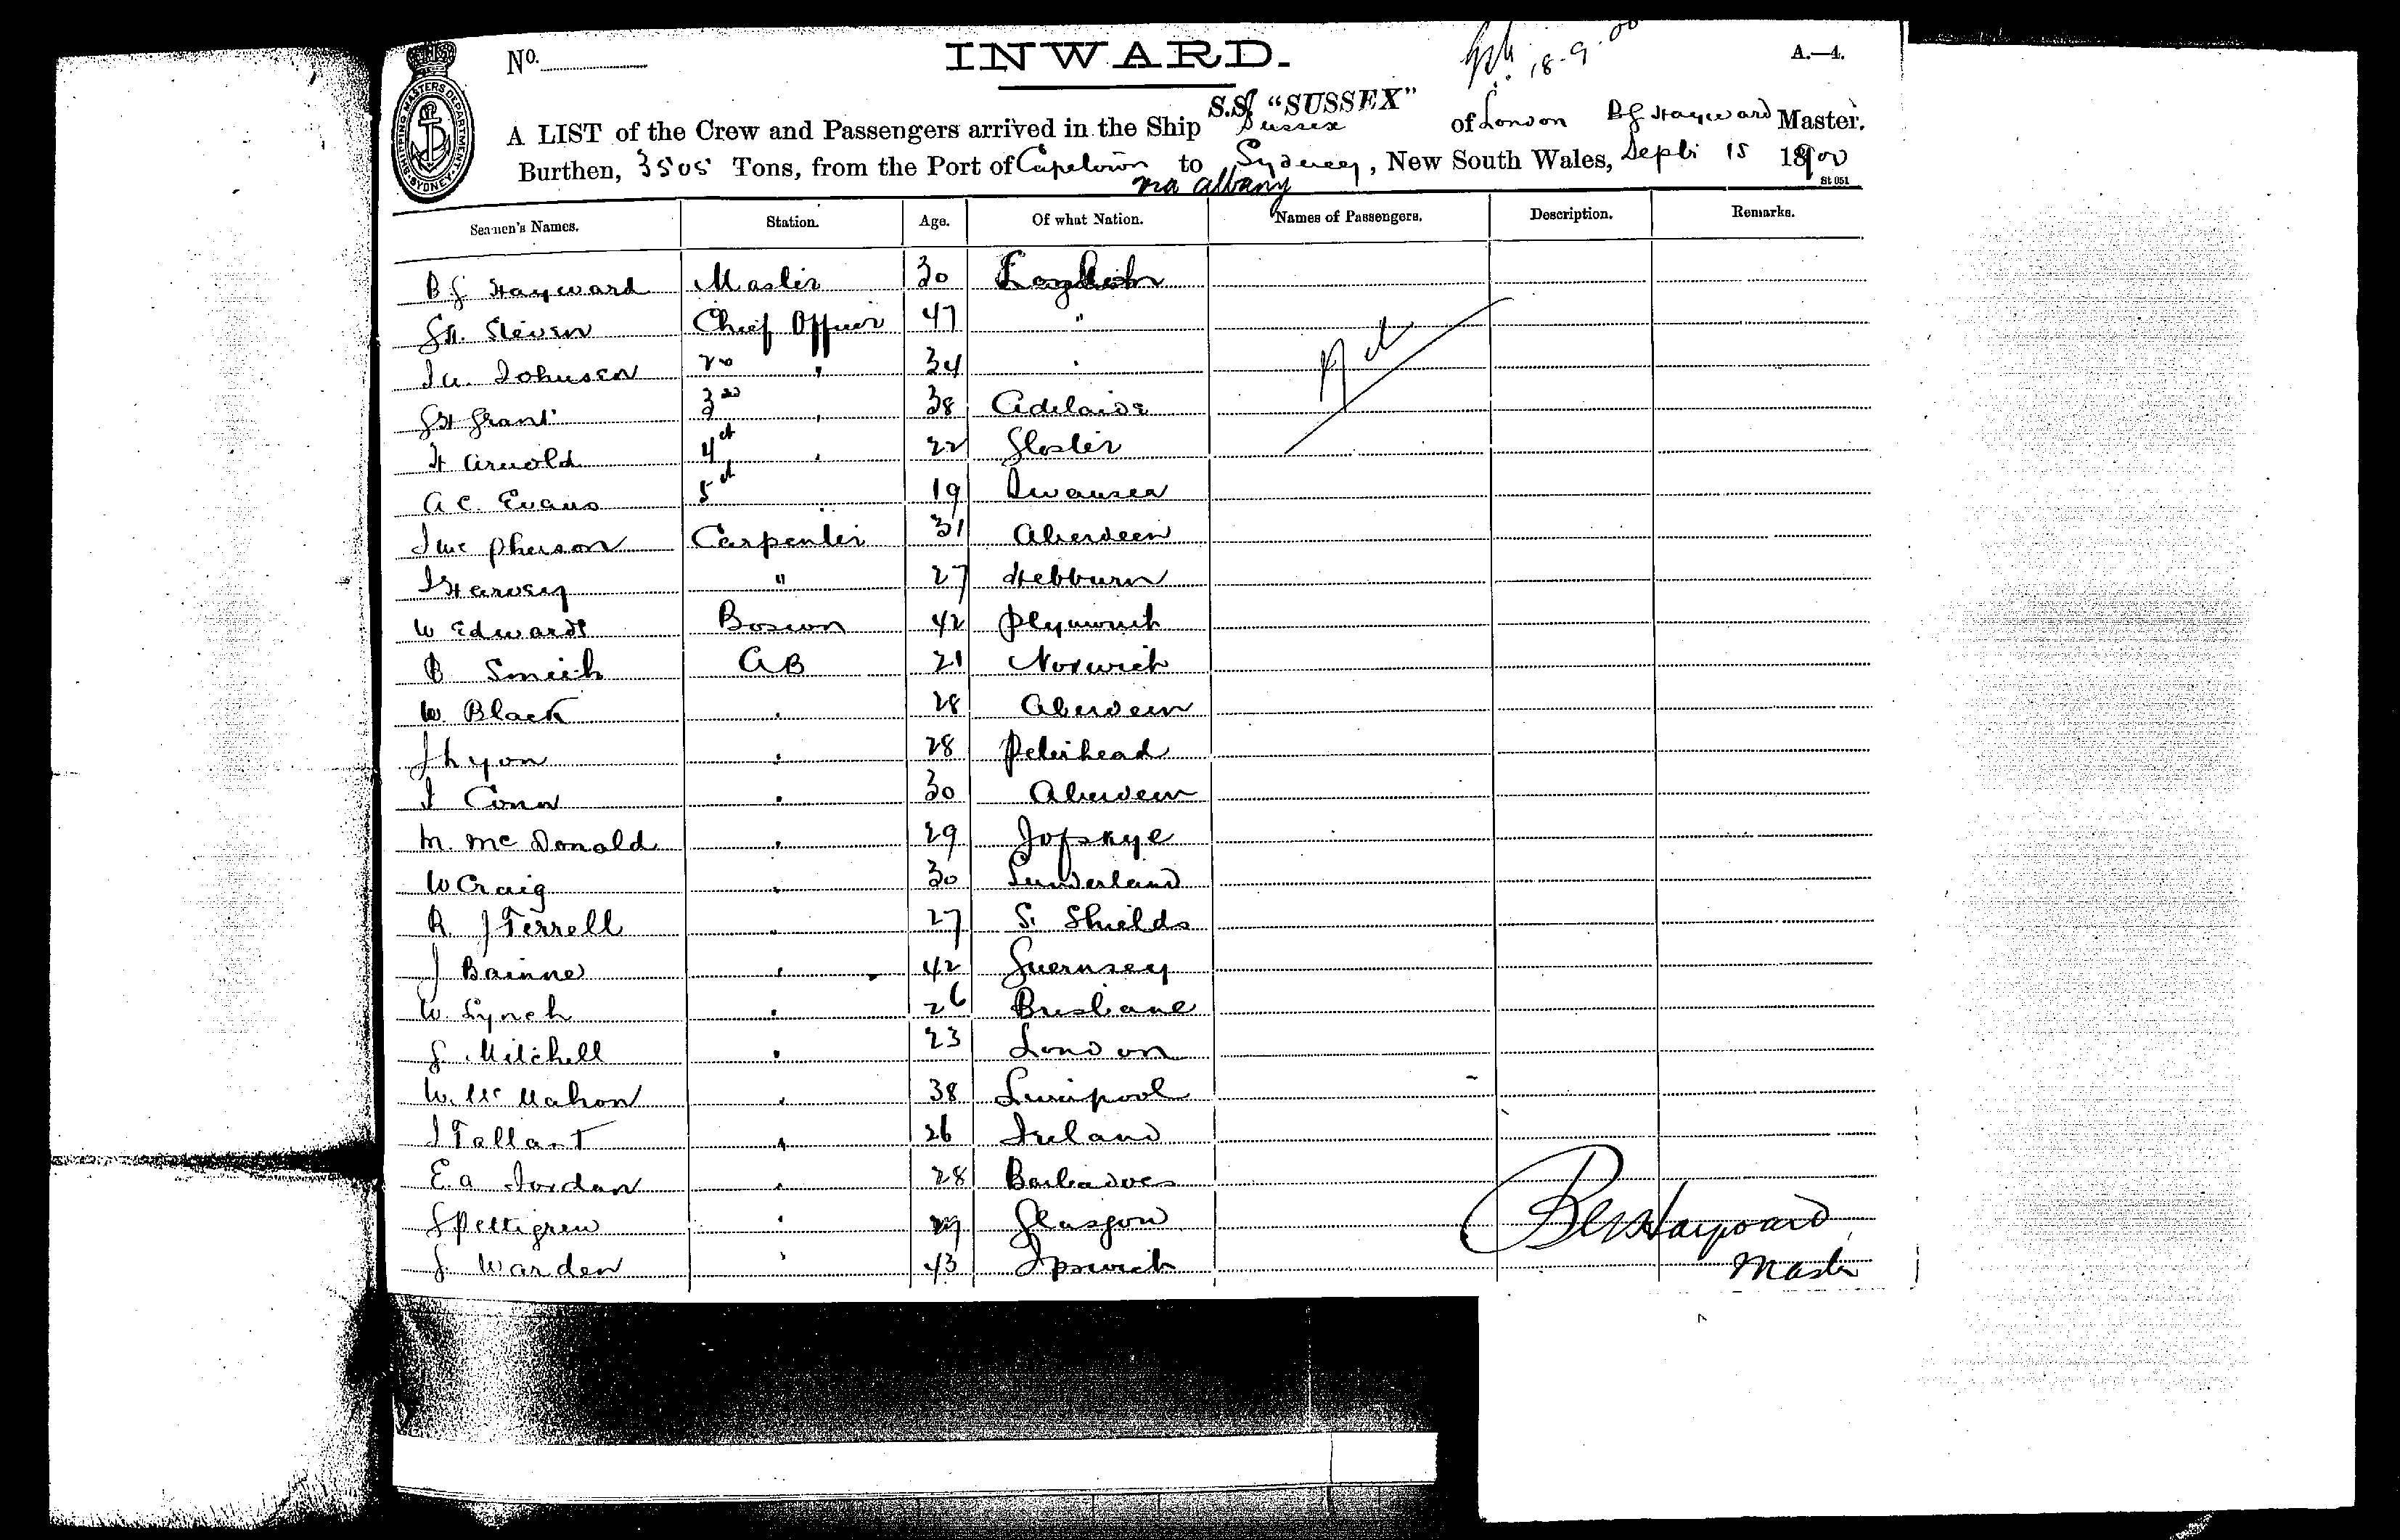 No.
INWARD.
18-9-00
A.—4.
SHIPPING MASTERS DEPARTMENT SYDNEY
S.S. "SUSSEX"
A LIST of the Crew and Passengers arrived in the Ship Sussex of London B G Hayward Master.
Burthen, 3505 Tons, from the Port of Capetown to Sydney, New South Wales, Septr 15 1900
via Albany
St 051
Seamen's Names. Station. Age. Of what Nation. Names of Passengers. Description. Remarks.
B G Hayward Master 30 English
GH. Steven Chief Officer 47 "
Johnson 2nd " 34 "
GH Grant 3rd " 38 Adelaide
H Arnold 4th " 22 Gloster
A C. Evans 5th 19 Swansea
J McPherson Carpenter 31 Aberdeen
J Harvey " 27 Hebburn
W Edwards Bosun 42 Plymouth
B Smith AB 21 Norwich
W. Black " 28 Aberdeen
J Lyon " 28 Peterhead
J Conn " 30 Aberdeen
M. McDonald " 29 J of Skye
W Craig " 30 Sunderland
R. J Terrell " 27 S. Shields
J Bainne " 42 Guernsey
W. Lynch " 26 Brisbane
G. Mitchell " 23 London
W. McMahon " 38 Liverpool
J Tallant " 26 Ireland
E.A Jordan " 28 Barbadoes
G Pettigrew " 29 Glasgow
G. Warden " 43 Ipswich
Nil
Hayward
Master